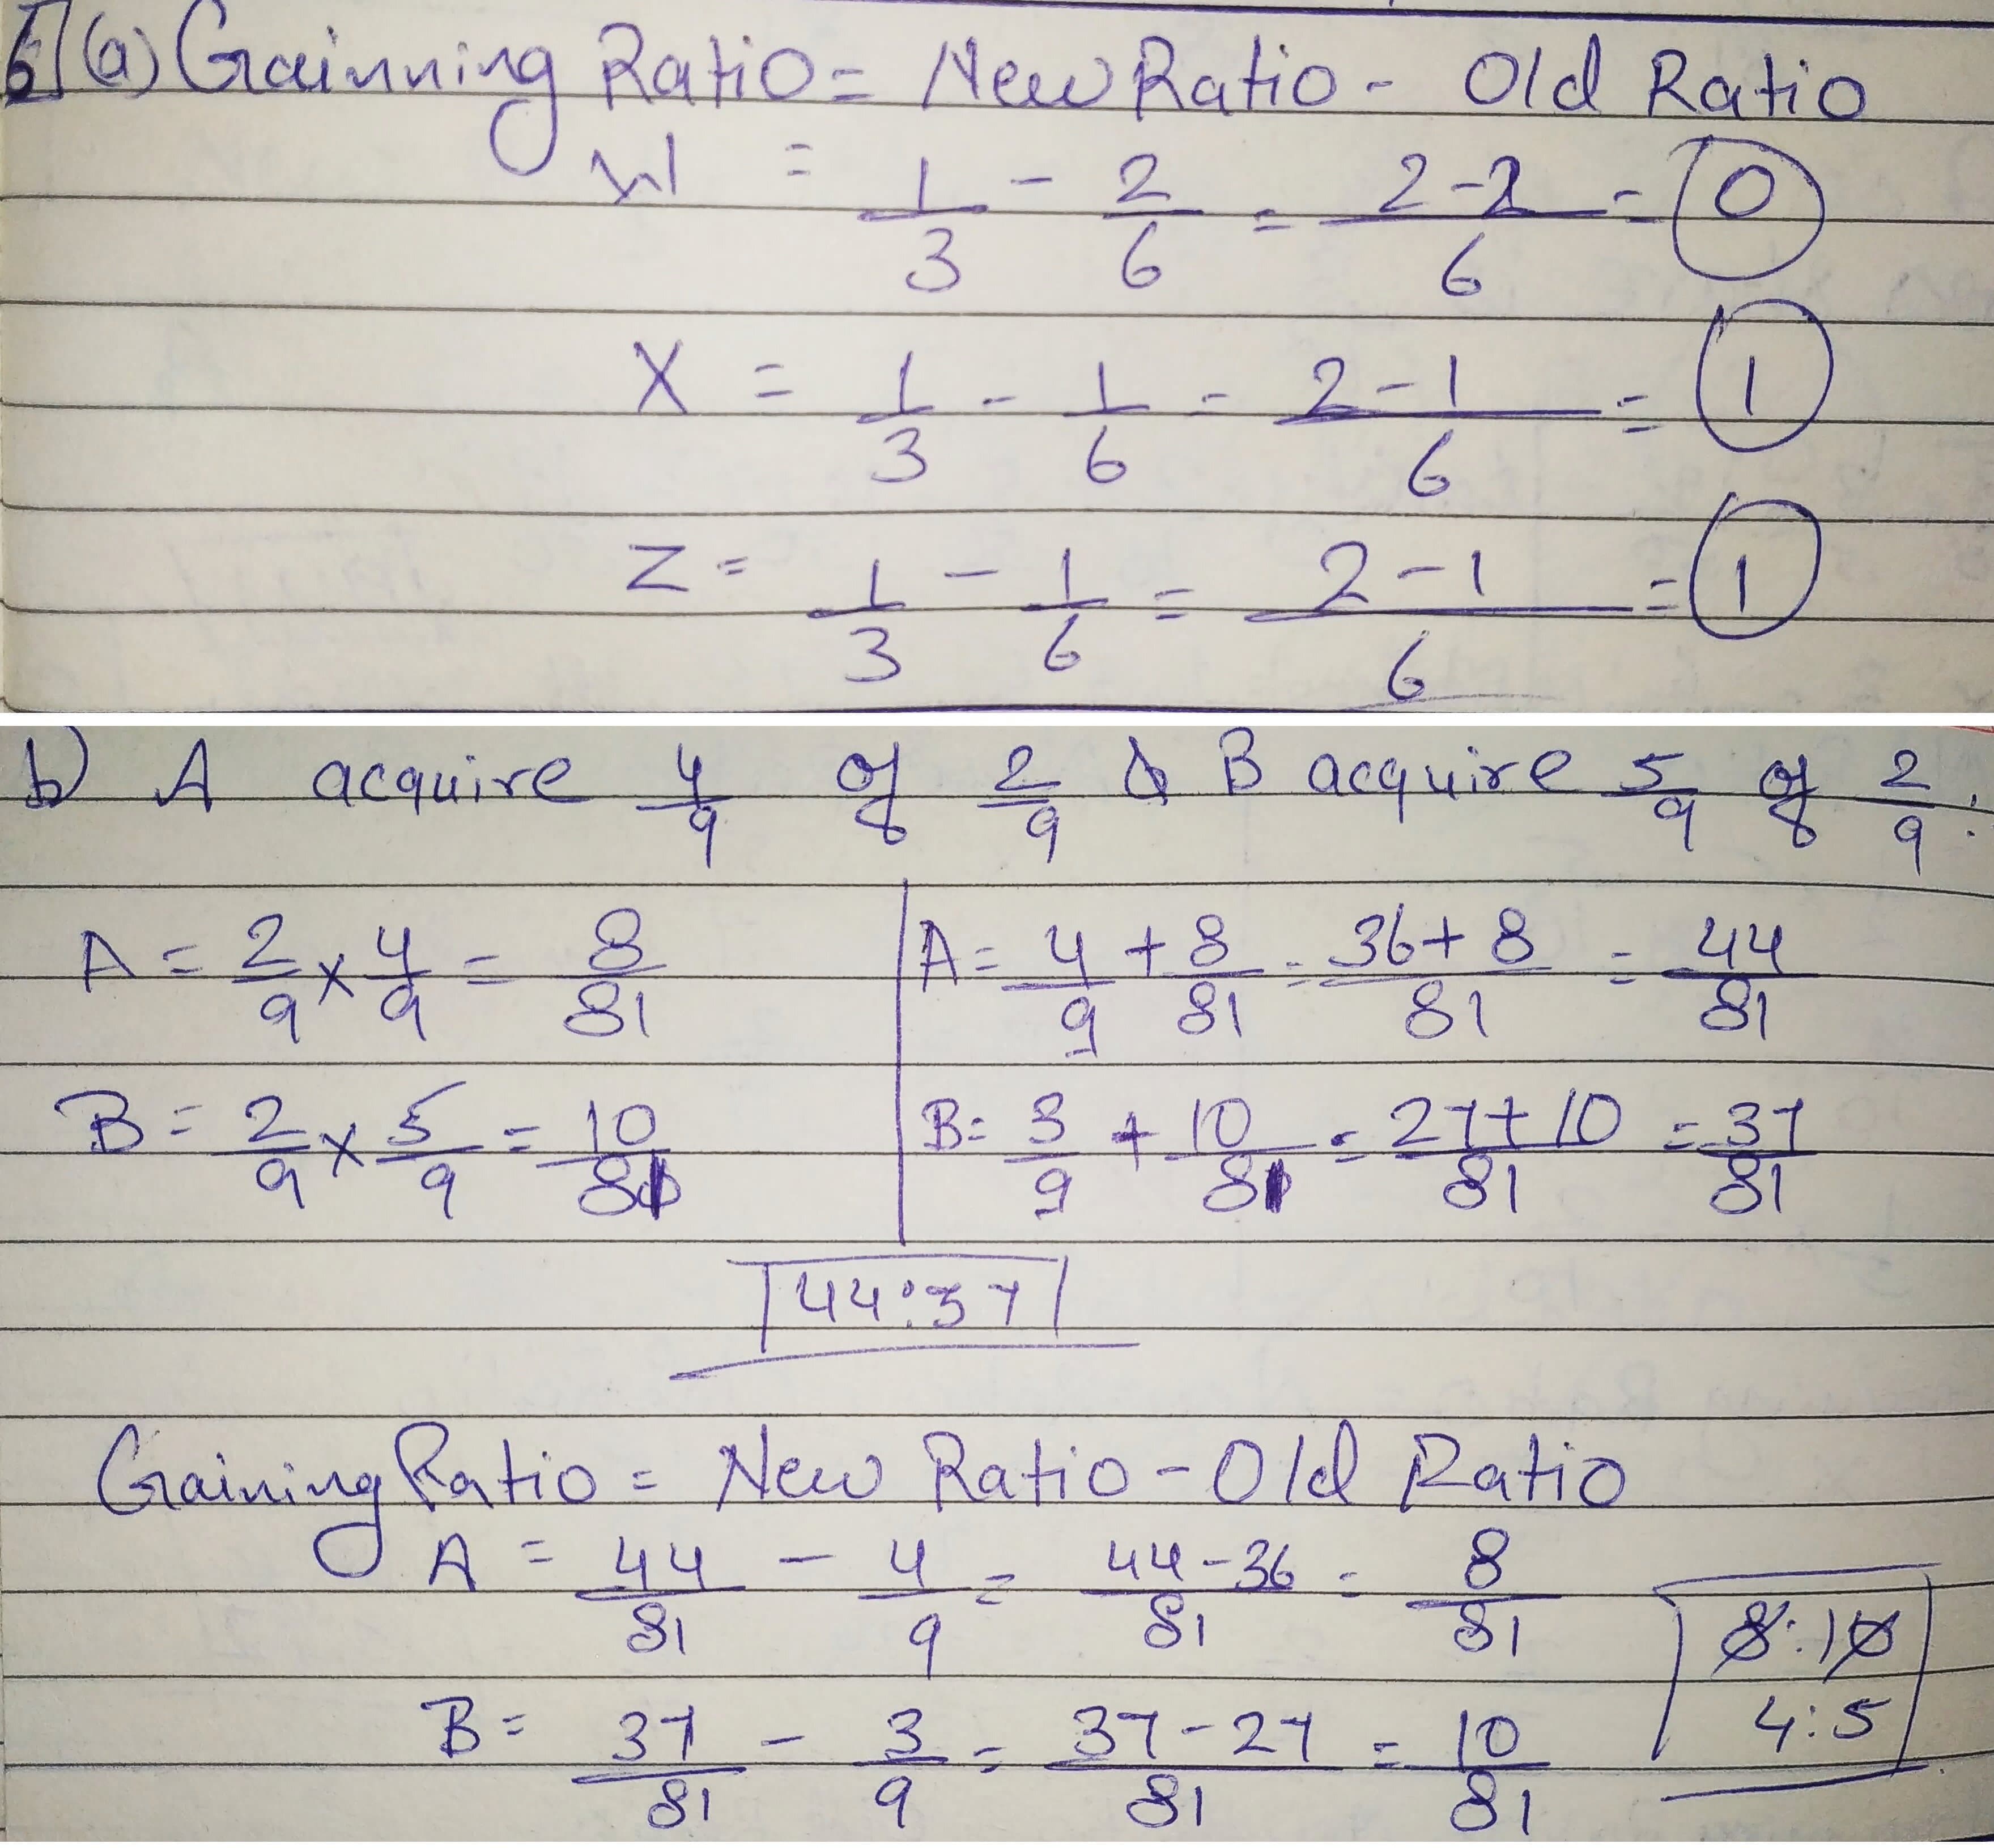 6] (a) Gainning Ratio = New Ratio - Old Ratio
W = 1/3 - 2/6 = 2-2/6 = 0
X = 1/3 - 1/6 = 2-1/6 = 1
Z = 1/3 - 1/6 = 2-1/6 = 1
b) A acquire 4/9 of 2/9 & B acquire 5/9 of 2/9.
A = 2/9 × 4/9 = 8/81 | A = 4/9 + 8/81 = 36+8/81 = 44/81
B = 2/9 × 5/9 = 10/81 | B = 3/9 + 10/81 = 27+10/81 = 37/81
44:37
Gaining Ratio = New Ratio - Old Ratio
A = 44/81 - 4/9 = 44-36/81 = 8/81
8:10
B = 37/81 - 3/9 = 37-27/81 = 10/81
4:5